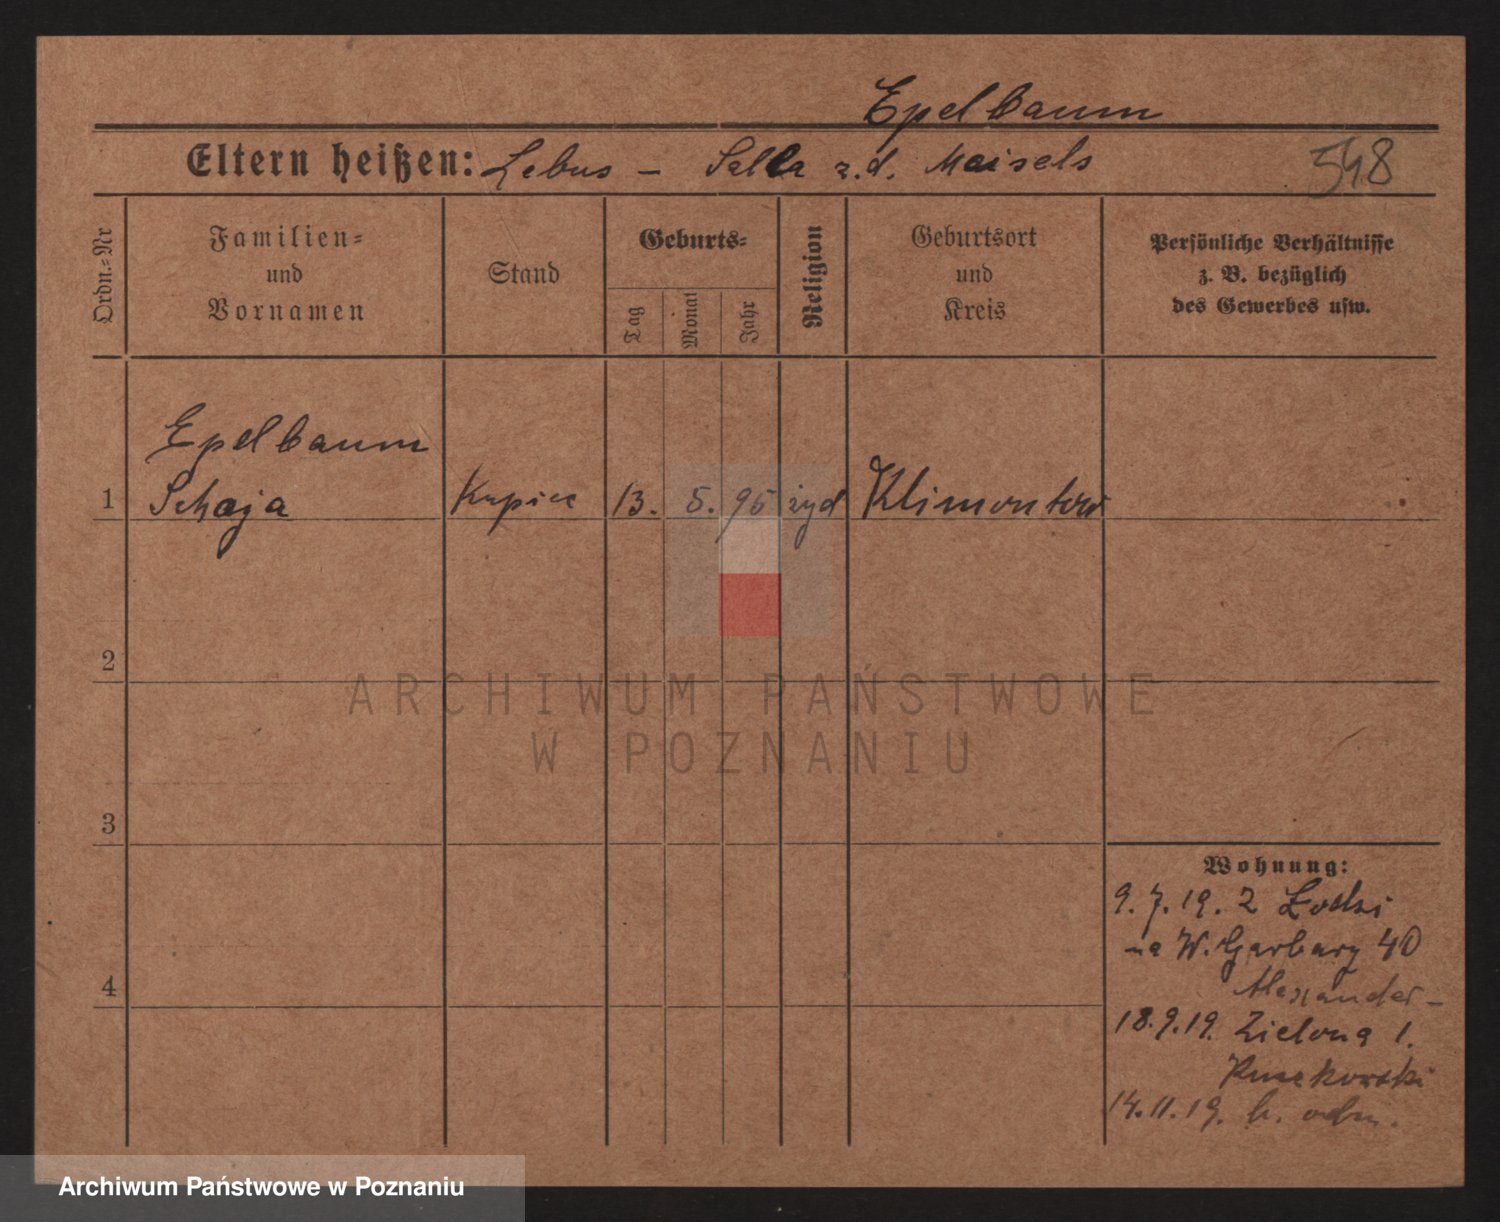 Epelbaum
Eltern heißen: Lebus – Salla z.d. Maisels 548
Ordn.=Nr
Familien=
und
Vornamen
Stand
Geburts=
Tag
Monat
Jahr
Religion
Geburtsort
und
Kreis
Persönliche Verhältnisse
z. B. bezüglich
des Gewerbes usw.
Epelbaum
1 Schaja Kupiec 13. 5. 95 żyd Klimontow
2
ARCHIWUM PAŃSTWOWE
W POZNANIU
3
Wohnung:
9.7.19. z Łodzi
na W. Garbary 40
4
Alexander–
18.9.19. Zielona 1.
14.11.19.
Archiwum Państwowe w Poznaniu